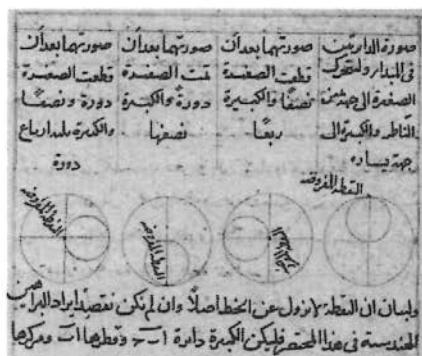 صورة الدائرتين
فى المبدأ ولتتحرك
الصغيرة الى جهة يمين
الناظر والكبيرة الى
جهة يساره
صورتهما بعد أن
قطعت الصغيرة
نصفًا والكبيرة
ربعًا
صورتهما بعد أن
تمت الصغيرة
دورةً والكبيرة
نصفها
صورتهما بعد أن
قطعت الصغيرة
دورة ونصفًا
والكبيرة ثلثة ارباع
دورة
النقطة المفروضة
النقطة المفروضة
النقطة المفروضة
النقطة المفروضة
ولبيان ان النقطة لا تزول عن الخط اصلًا وان لم نكن نقصد ايراد البراهين
الهندسية فى هذا المختصر فليكن الكبيرة دائرة اب ح وقطرها اب ومركزها